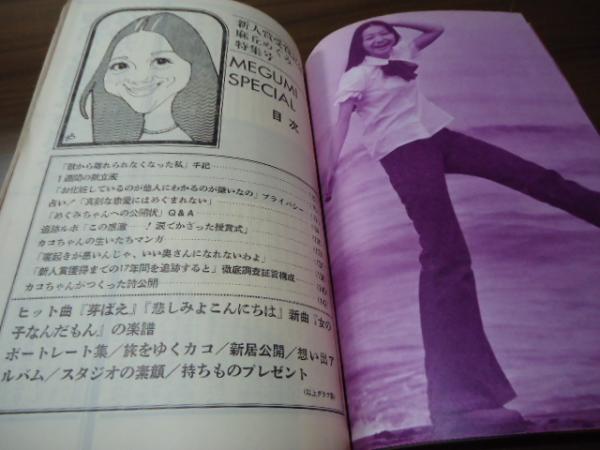 新人賞受賞記念
麻丘めぐみ
特集号
MEGUMI
SPECIAL
目次
「歌から離れられなくなった私」手記
1週間の献立表
「お化粧しているのが他人にわかるのが嫌いなの」プライバシー
占い／「真剣な恋愛にはめぐまれない」
「めぐみちゃんへの公開状」Q&A
追跡ルポ「この感激──！涙でかざった授賞式」
カコちゃんの生いたちマンガ
「寝起きが悪いんじゃ、いい奥さんになれないわよ」
「新人賞獲得までの17年間を追跡すると」徹底調査証言構成
カコちゃんがつくった詩公開
ヒット曲『芽ばえ』『悲しみよこんにちは』新曲『女の
子なんだもん』の楽譜
ポートレート集／旅をゆくカコ／新居公開／想い出ア
ルバム／スタジオの素顔／持ちものプレゼント